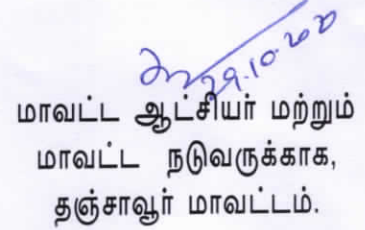 29.10.20
மாவட்ட ஆட்சியர் மற்றும்
மாவட்ட நடுவருக்காக,
தஞ்சாவூர் மாவட்டம்.